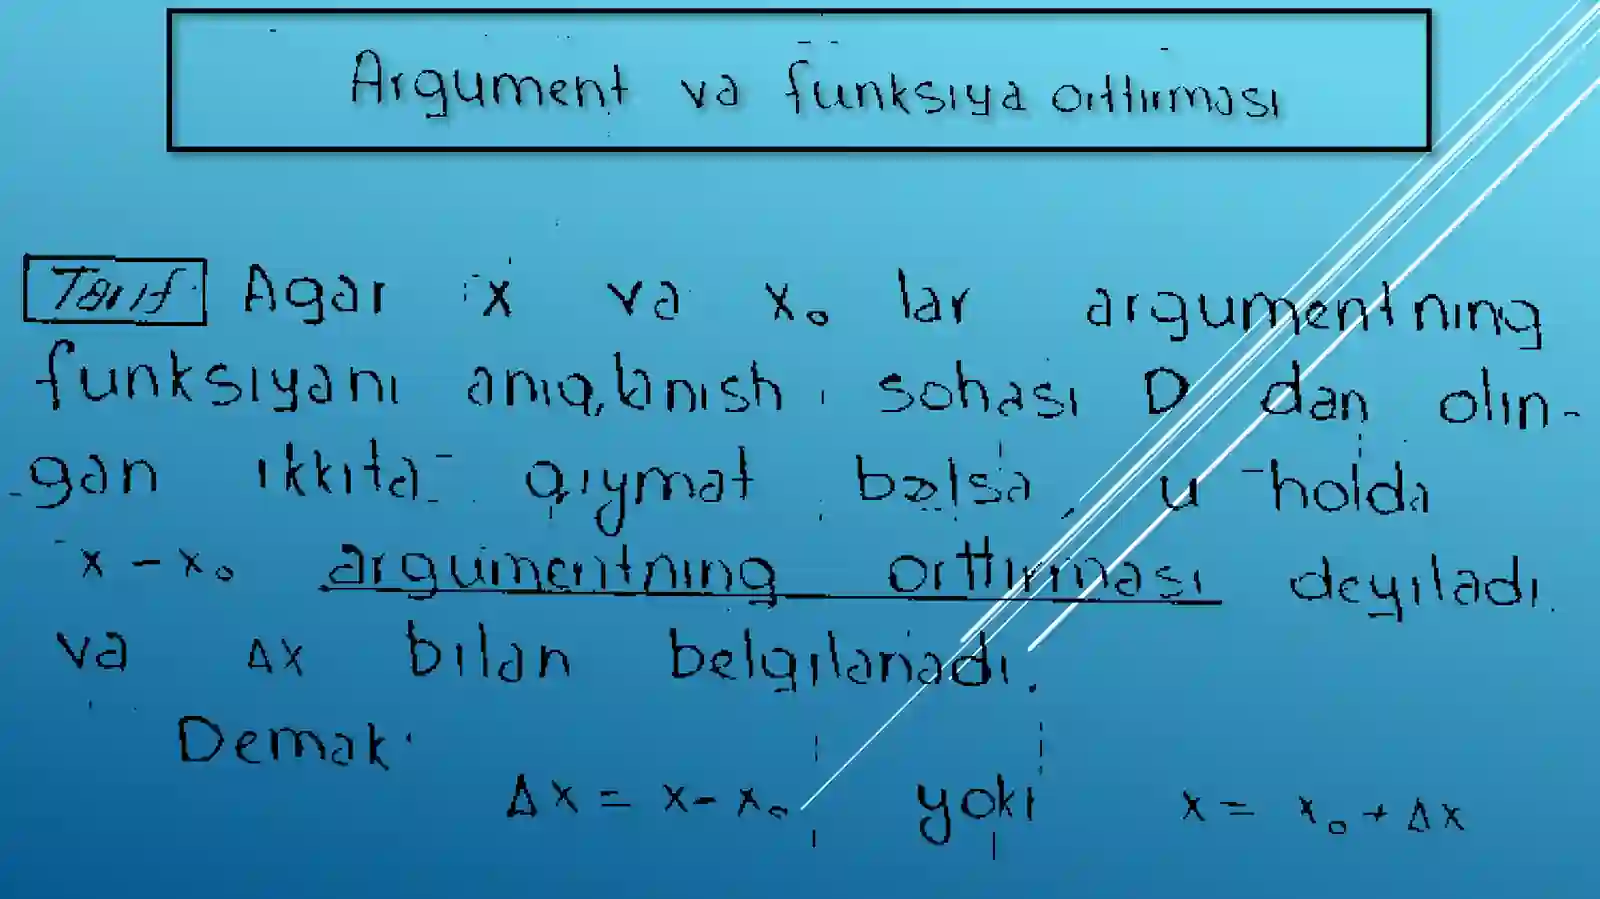 Argument va funksiya orttirmasi
Tarif Agar x va x₀ lar argumentning
funksiyani aniqlanish sohasi D dan olin-
gan ikkita qiymat bolsa u holda
x - x₀ argumentning orttirmasi deyiladi
va Δx bilan belgilanadi.
Demak
Δx = x - x₀ yoki x = x₀ + Δx